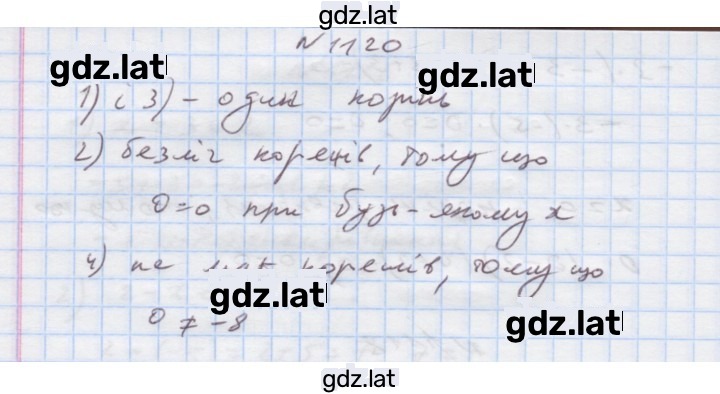 gdz.lat
N 1120
gdz.lat gdz.lat
1) і 3) - один корінь
2) безліч коренів, тому що
0=0 при будь-якому x
4) не має коренів, тому що
gdz.lat
0 ≠ -8
gdz.lat
gdz.lat